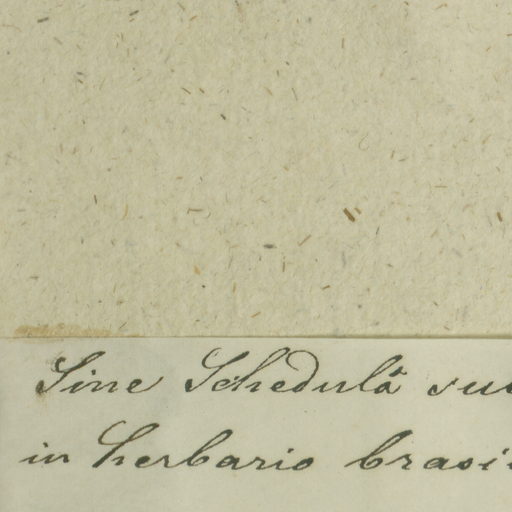 Sine Schedulâ su
in herbario brasi